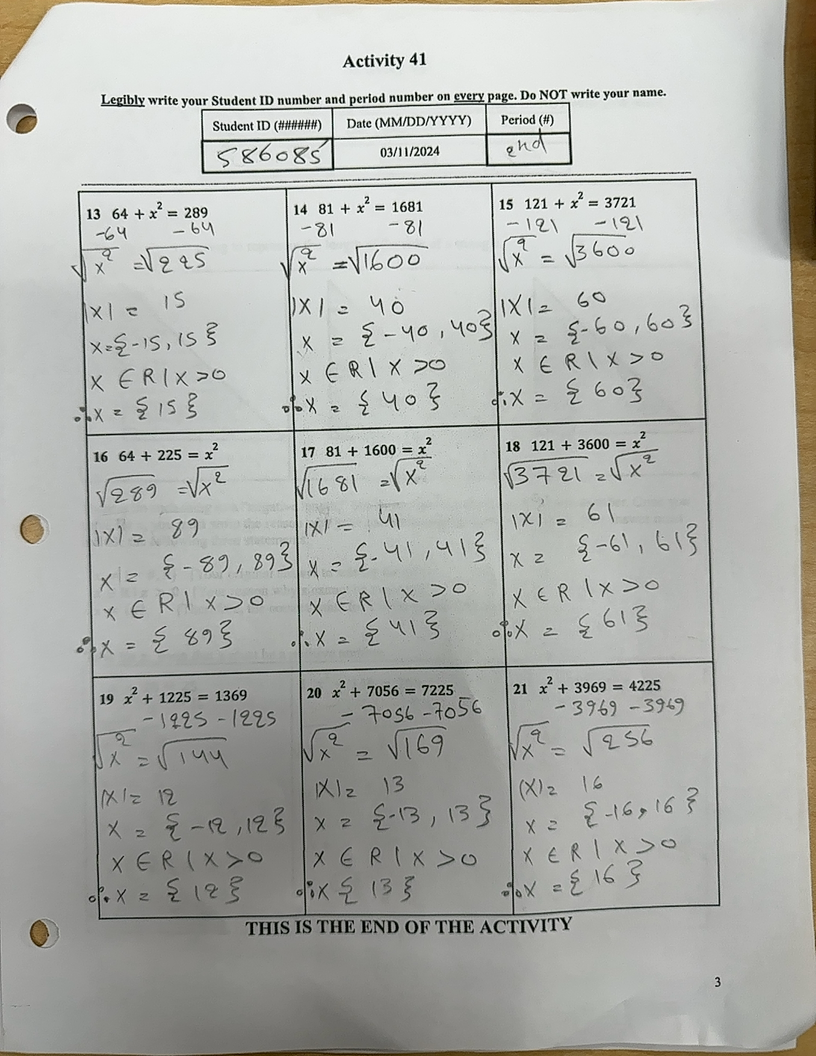 Activity 41
Legibly write your Student ID number and period number on every page. Do NOT write your name.
Student ID (######) Date (MM/DD/YYYY) Period (#)
586085 03/11/2024 2nd
13 64 + x² = 289
-64 -64
√x² = √225
|x| = 15
x = {-15, 15}
x ∈ R | x > 0
∴ x = {15}
14 81 + x² = 1681
-81 -81
√x² = √1600
|x| = 40
x = {-40, 40}
x ∈ R | x > 0
∴ x = {40}
15 121 + x² = 3721
-121 -121
√x² = √3600
|x| = 60
x = {-60, 60}
x ∈ R | x > 0
∴ x = {60}
16 64 + 225 = x²
√289 = √x²
|x| = 89
x = {-89, 89}
x ∈ R | x > 0
∴ x = {89}
17 81 + 1600 = x²
√1681 = √x²
|x| = 41
x = {-41, 41}
x ∈ R | x > 0
∴ x = {41}
18 121 + 3600 = x²
√3721 = √x²
|x| = 61
x = {-61, 61}
x ∈ R | x > 0
∴ x = {61}
19 x² + 1225 = 1369
-1225 -1225
√x² = √144
|x| = 12
x = {-12, 12}
x ∈ R | x > 0
∴ x = {12}
20 x² + 7056 = 7225
-7056 -7056
√x² = √169
|x| = 13
x = {-13, 13}
x ∈ R | x > 0
∴ x {13}
21 x² + 3969 = 4225
-3969 -3969
√x² = √256
|x| = 16
x = {-16, 16}
x ∈ R | x > 0
∴ x = {16}
THIS IS THE END OF THE ACTIVITY
3